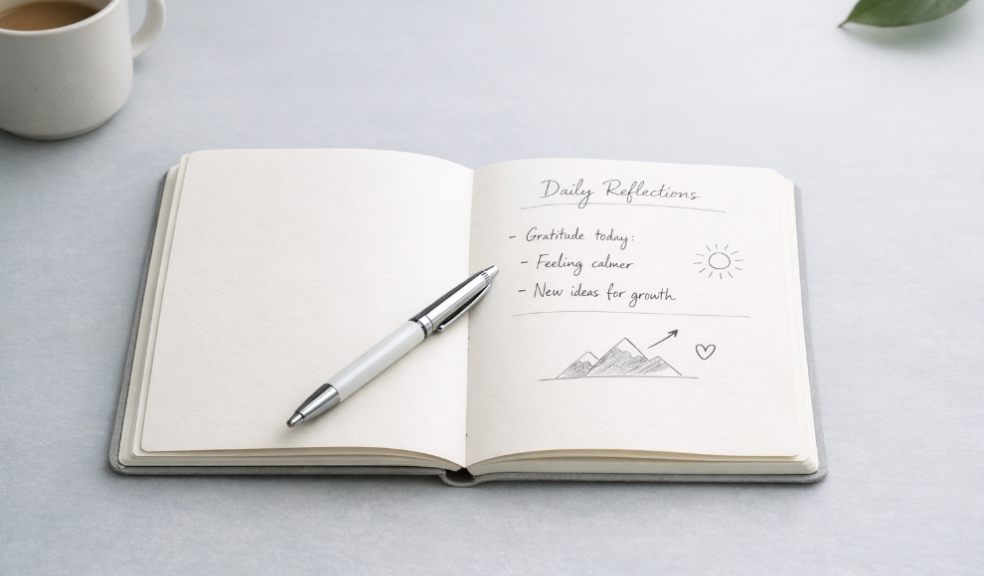 Daily Reflections
- Gratitude today:
- Feeling calmer
- New ideas for growth